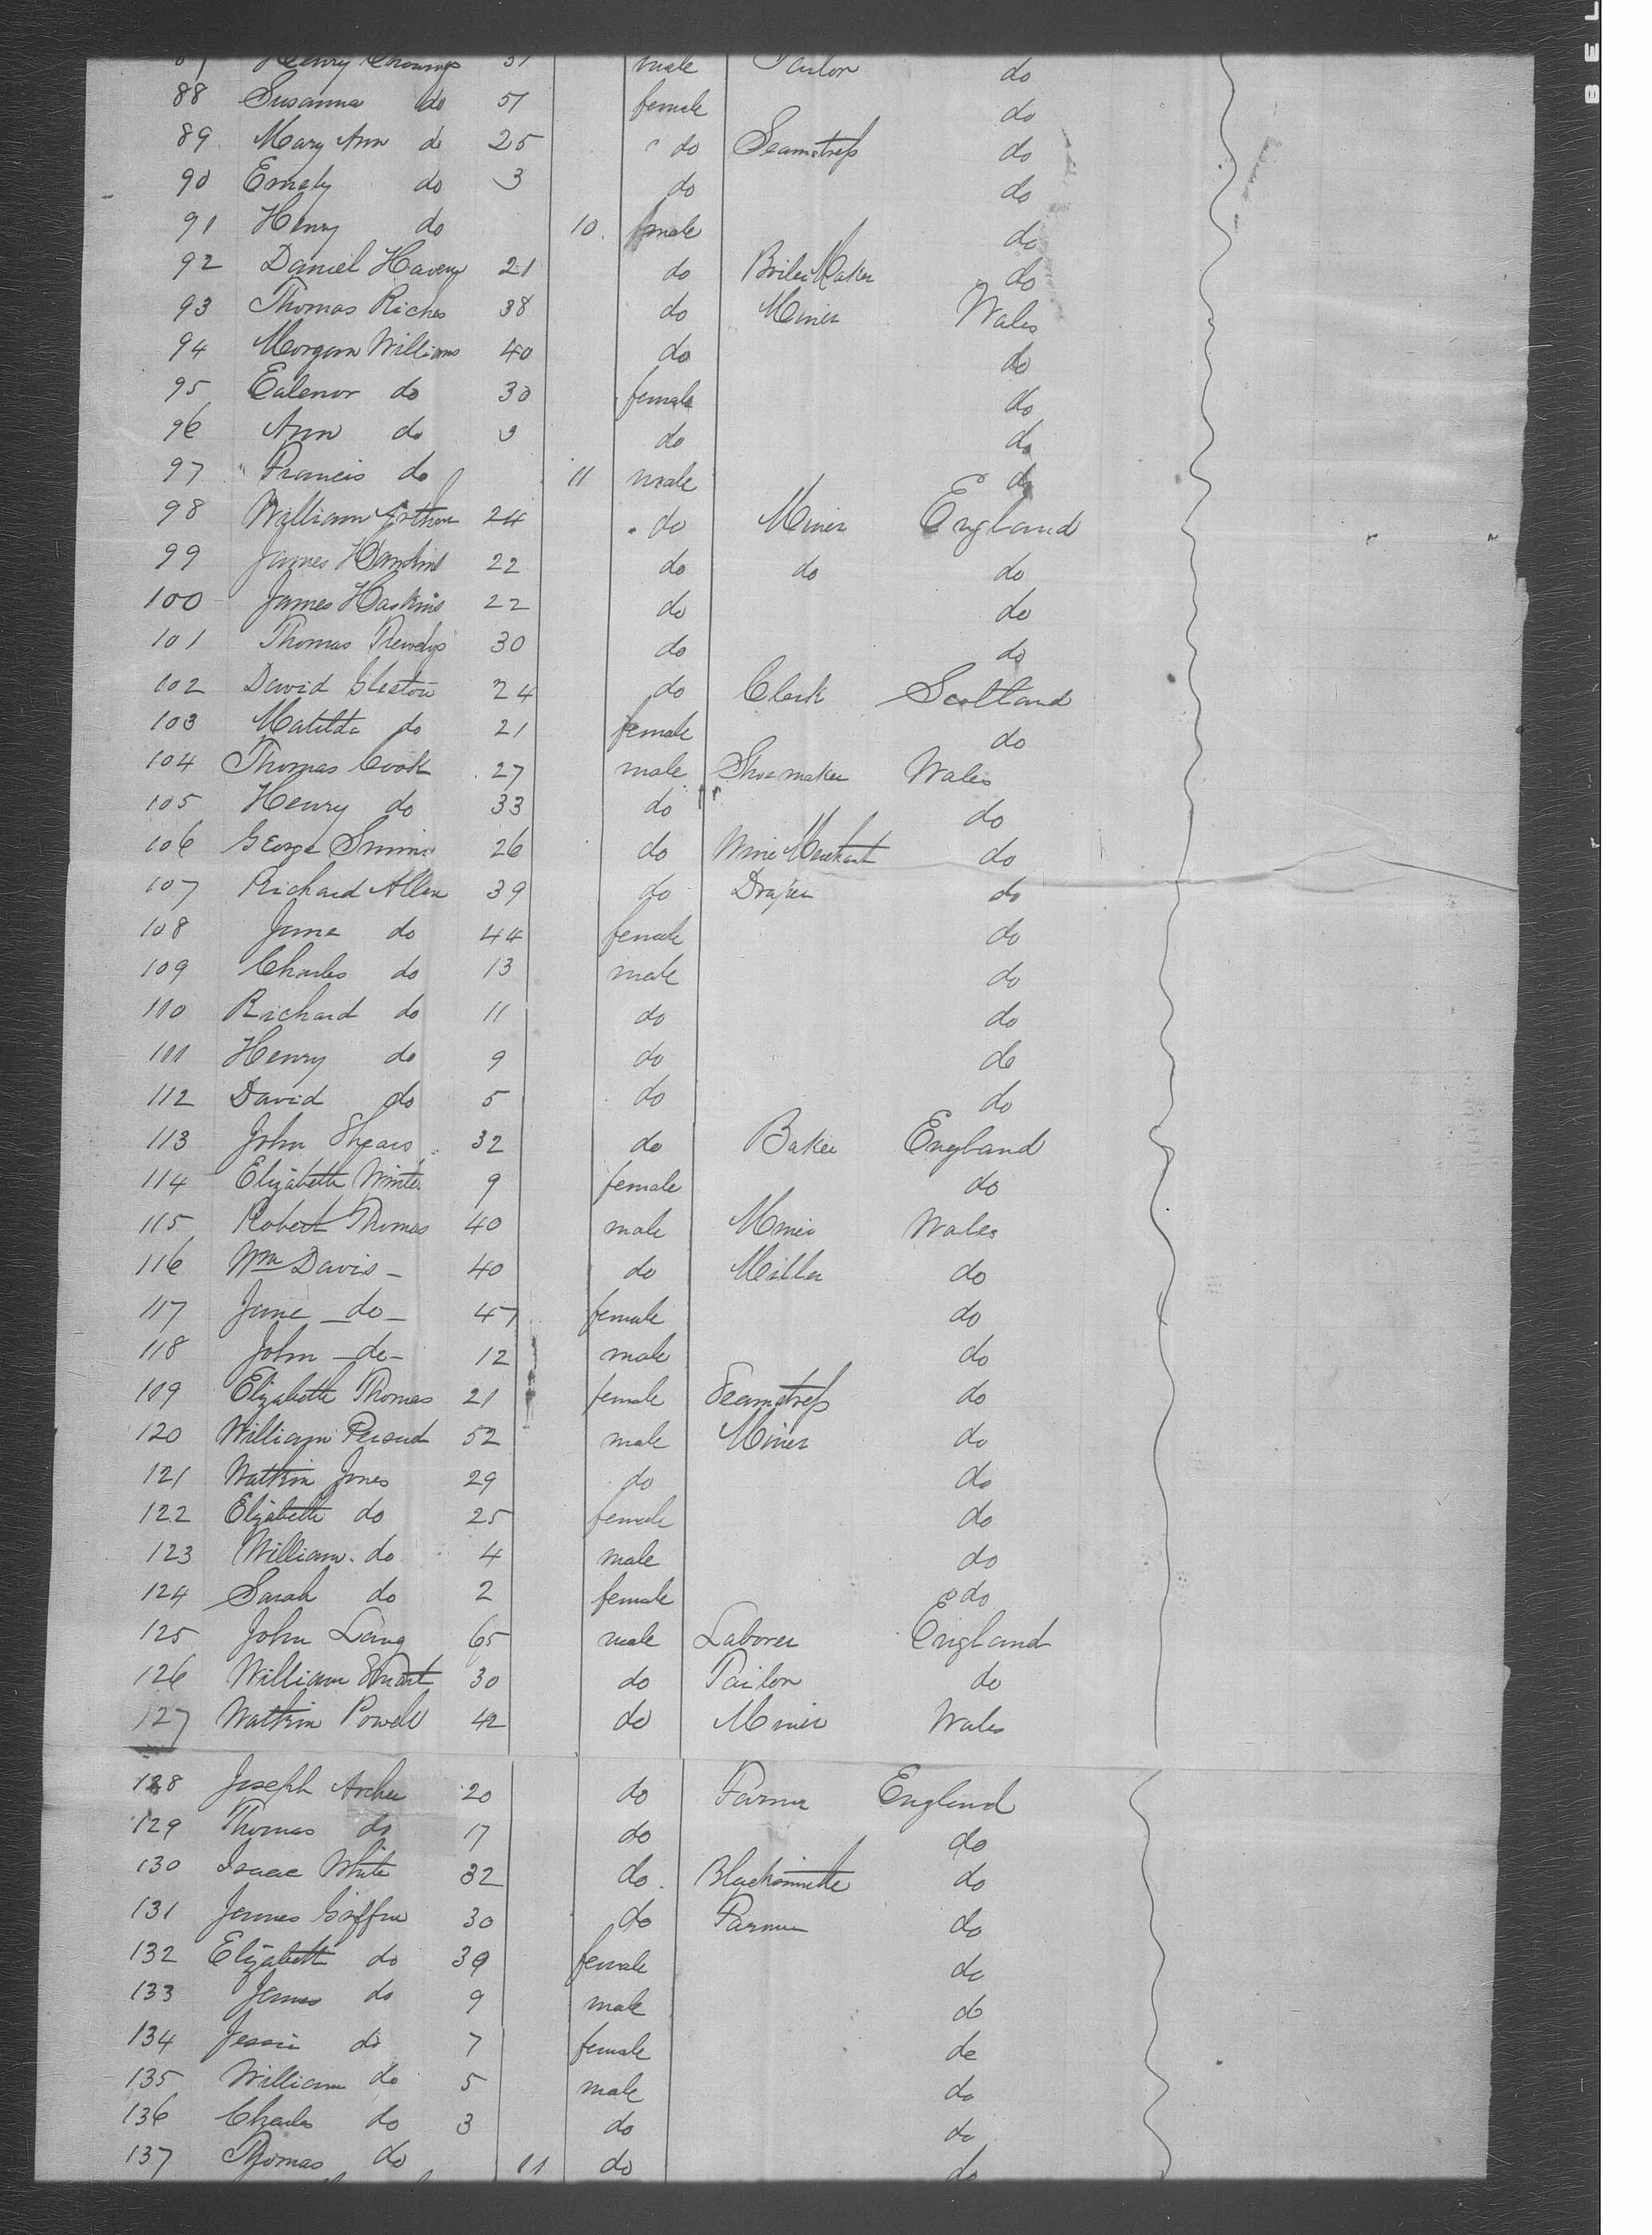 Henry male Tailor do
88 Susanna do 51 female do
89 Mary Ann do 25 do Seamstress do
90 Emely do 3 do do
91 Henry do 10 male do
92 Daniel 21 do Boiler Maker do
93 Thomas Riches 38 do Miner Wales
94 Morgan Williams 40 do do
95 Ealenor do 30 female do
96 Ann do 9 do do
97 Francis do 11 male do
98 William 24 do Miner England
99 James 22 do do do
100 James Haskins 22 do do
101 Thomas 30 do do
102 David 24 do Clerk Scotland
103 Matilda do 21 female do
104 Thomas Cook 27 male Shoemaker Wales
105 Henry do 33 do do
106 George 26 do Wine Merchant do
107 Richard Allen 39 do Draper do
108 Jane do 44 female do
109 Charles do 13 male do
110 Richard do 11 do do
111 Henry do 9 do do
112 David do 5 do do
113 John Shears 32 do Baker England
114 Elizabeth Winter 9 female do
115 Robert Thomas 40 male Miner Wales
116 Wm Davis - 40 do Miller do
117 Jane - do - 47 female do
118 John - do - 12 male do
119 Elizabeth Thomas 21 female Seamstress do
120 William 52 male Miner do
121 Watkin Jones 29 do do
122 Elizabeth do 25 female do
123 William do 4 male do
124 Sarah do 2 female do
125 John Lang 65 male Laborer England
126 William 30 do Tailor do
127 Watkin Powell 42 do Miner Wales
128 Joseph Archer 20 do Farmer England
129 Thomas do 17 do do
130 Isaac White 32 do Blacksmith do
131 James Griffin 30 do Farmer do
132 Elizabeth do 39 female do
133 James do 9 male do
134 Jessie do 7 female do
135 William do 5 male do
136 Charles do 3 do do
137 Thomas do 11 do do